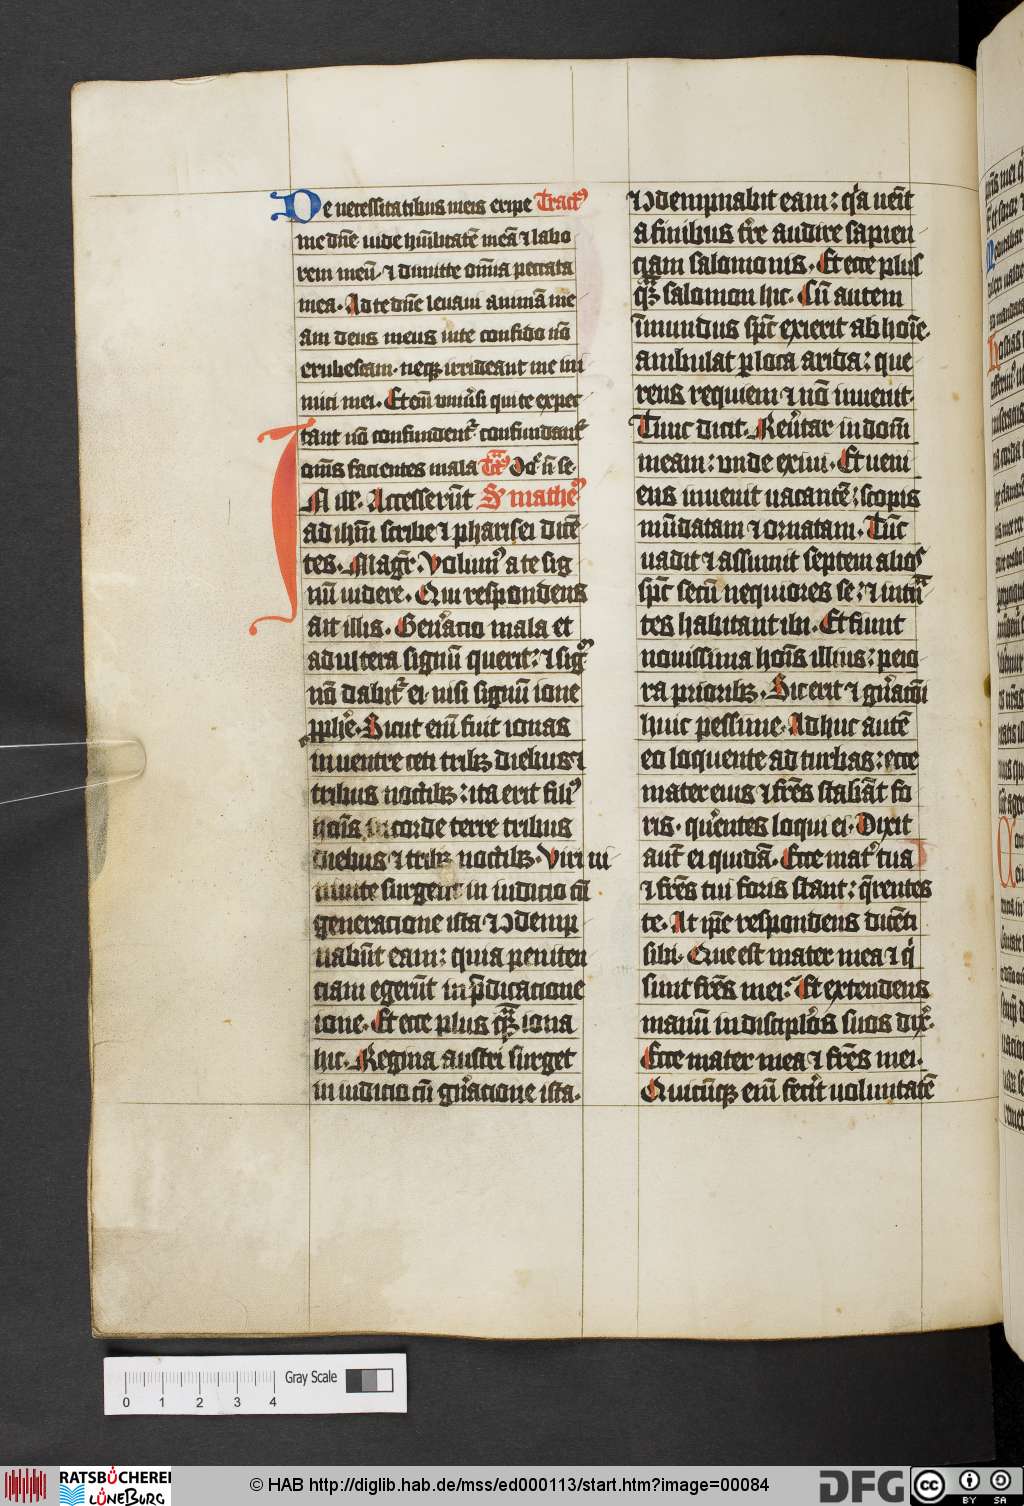 De necessitatibus meis eripe Tract⁹
me dn̄e vide hūilitatē meā ⁊ labo
rem meū · ⁊ dimitte om̄ia peccata
mea · Ad te dn̄e levavi animā me
am deus meus in te confido nō
erubescam · neqꝫ irrideant me ini
mici mei · Etem̄ vniūsi qui te expec
tant nō confundent᷑ · confundant᷑
om̄s facientes mala
In ill̄ · Accesserūt S mathe⁹
ad ih̄m scribe ⁊ pharisei dicē
tes · Magr̄ · Volum⁹ a te sig
nū videre · Qui respondens
ait illis · Gen̄acio mala et
adultera signū querit : ⁊ sig⁹
nō dabit᷑ ei nisi signū ione
ꝓph̄e · Sicut em̄ fuit ionas
in ventre ceti tribꝫ diebus ⁊
tribus noctibꝫ : ita erit fili⁹
hoīs in corde terre tribus
diebus ⁊ tribꝫ noctibꝫ · Viri ni
nivite surgent in iudicio cū
generacione ista ⁊ ↄdemp
nabūt eam : quia peniten
ciam egerūt in p̄dicacione
ione · Et ecce plus qꝫ iona
hic · Regina austri surget
in iudicio cū gn̄acione ista ·
⁊ ↄdempnabit eam : qͥa ven̄it
a finibus tr̄e audire sapien
ciam salomonis · Et ecce plus
qꝫ salomon hic · Cū autem
īmundus sp̄c exierit ab hoīe ·
ambulat ꝑ loca arida : que
rens requiem ⁊ nō invenit ·
Tunc dicit · Rev̄tar in domū
meam : vnde exivi · Et veni
ens invenit vacantē : scopis
mūdatam ⁊ ornatam · Tūc
vadit ⁊ assumit septem alios
sp̄c secū nequiores se : ⁊ intrā
tes habitant ibi · Et fiunt
novissima hoīs illius : peio
ra prioribꝫ · Sic erit ⁊ gn̄acōi
huic pessime · Adhuc autē
eo loquente ad turbas : ecce
mater eius ⁊ fr̄es stabāt fo
ris · qūentes loqui ei · Dixit
aut̄ ei quidā · Ecce mat᷑ tua
⁊ fr̄es tui foris stant : q̄rentes
te · At ip̄e respondens dicēti
sibi · Que est mater mea ⁊ qͥ
sunt fr̄es mei · Et extendens
manū in discipl̄os suos dix̄ ·
Ecce mater mea ⁊ fr̄es mei ·
Quicūqꝫ em̄ fec̄it voluntatē
Gray Scale
0 1 2 3 4
RATSBÜCHEREI
LÜNEBURG
© HAB http://diglib.hab.de/mss/ed000113/start.htm?image=00084
DFG
cc
BY SA